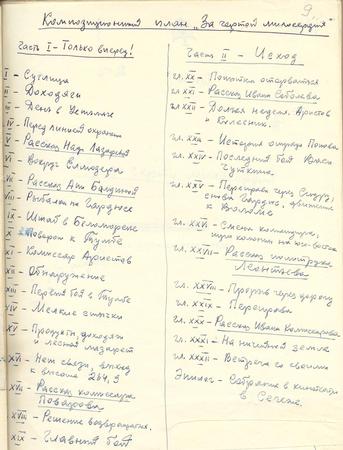 9
Композиционный план "За чертой милосердия"
Часть I - Только вперед!
I - Сутилица
II - Доходяги
III - День в Услагине
IV - Перед линией охранения
V - Рассказ Нади Лазаревой
VI - Вокруг Елмозера
VII - Рассказ Ани Балдиной
VIII - Рыбалка на Гардюсе
IX - Штаб в Беломорске
X - Поворот к Тумбе
XI - Комиссар Аристов
XII - Обнаружение
XIII - Первый бой в Тумбе
XIV - Мелкие стычки
XV - Продукты, доходяги
и лесной лазарет
XVI - Нет связи, выход
к высоте 264,9
XVII - Рассказ комиссара
Поварова
XVIII - Решение возвращаться.
XIX - Главный бой
Часть II - Исход
гл. XX - Попытки оторваться
гл. XXI - Рассказ Ивана Соболева
гл. XXII - Долгая неделя. Аристов
и Колесник.
гл. XXIII - История отряда Попова
гл. XXIV - Последний бой Васи
Чуткина
гл. XXV - Переправа через Сидру,
снова Гардюс, движение
к Воломе
гл. XXVI - Смена командира,
три колонны на юго-восток
гл. XXVII - Рассказ политрука
Леонтьева
гл. XXVIII - Прорыв через дорогу
гл. XXIX - Переправа
гл. XXX - Рассказ Ивана Комиссарова
гл. XXXI - На ничейной земле
гл. XXXII - Встреча со своими
Эпилог - Собрание в кинотеатре
в Сегеже.